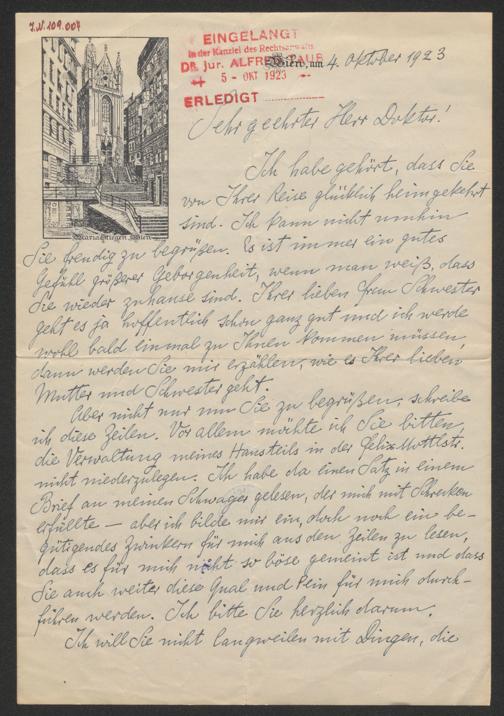 I.N. 109.004
EINGELANGT
in der Kanzlei des Rechtsanwalts
DR. jur. ALFRED
5 - OKT 1923
ERLEDIGT
Wien, am 4. Oktober 1923
Maria Stiegen, Wien
Sehr geehrter Herr Doktor!
Ich habe gehört, dass Sie
von Ihrer Reise glücklich heimgekehrt
sind. Ich kann nicht umhin
Sie freudig zu begrüßen. Es ist immer ein gutes
Gefühl größerer Geborgenheit, wenn man weiß, dass
Sie wieder zuhause sind. Ihrer lieben Frau Schwester
geht es ja hoffentlich schon ganz gut und ich werde
wohl bald einmal zu Ihnen kommen müssen,
dann werden Sie mir erzählen, wie es Ihrer lieben
Mutter und Schwester geht.
Aber nicht nur um Sie zu begrüßen, schreibe
ich diese Zeilen. Vor allem möchte ich Sie bitten,
die Verwaltung meines Hausteils in der Felix Mottlstr.
nicht niederzulegen. Ich habe da einen Satz in einem
Brief an meinen Schwager gelesen, der mich mit Schrecken
erfüllte — aber ich bilde mir ein, doch noch ein be-
gütigendes Zwinkern für mich aus den Zeilen zu lesen,
dass es für mich nicht so böse gemeint ist und dass
Sie auch weiter diese Qual und Pein für mich durch-
führen werden. Ich bitte Sie herzlich darum.
Ich will Sie nicht langweilen mit Dingen, die